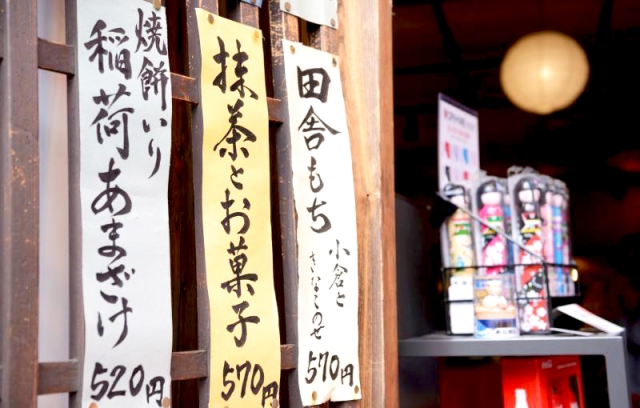 田舎もち
小倉と
きなこのせ
570円
抹茶とお菓子
570円
焼餅いり
稲荷あまざけ
520円